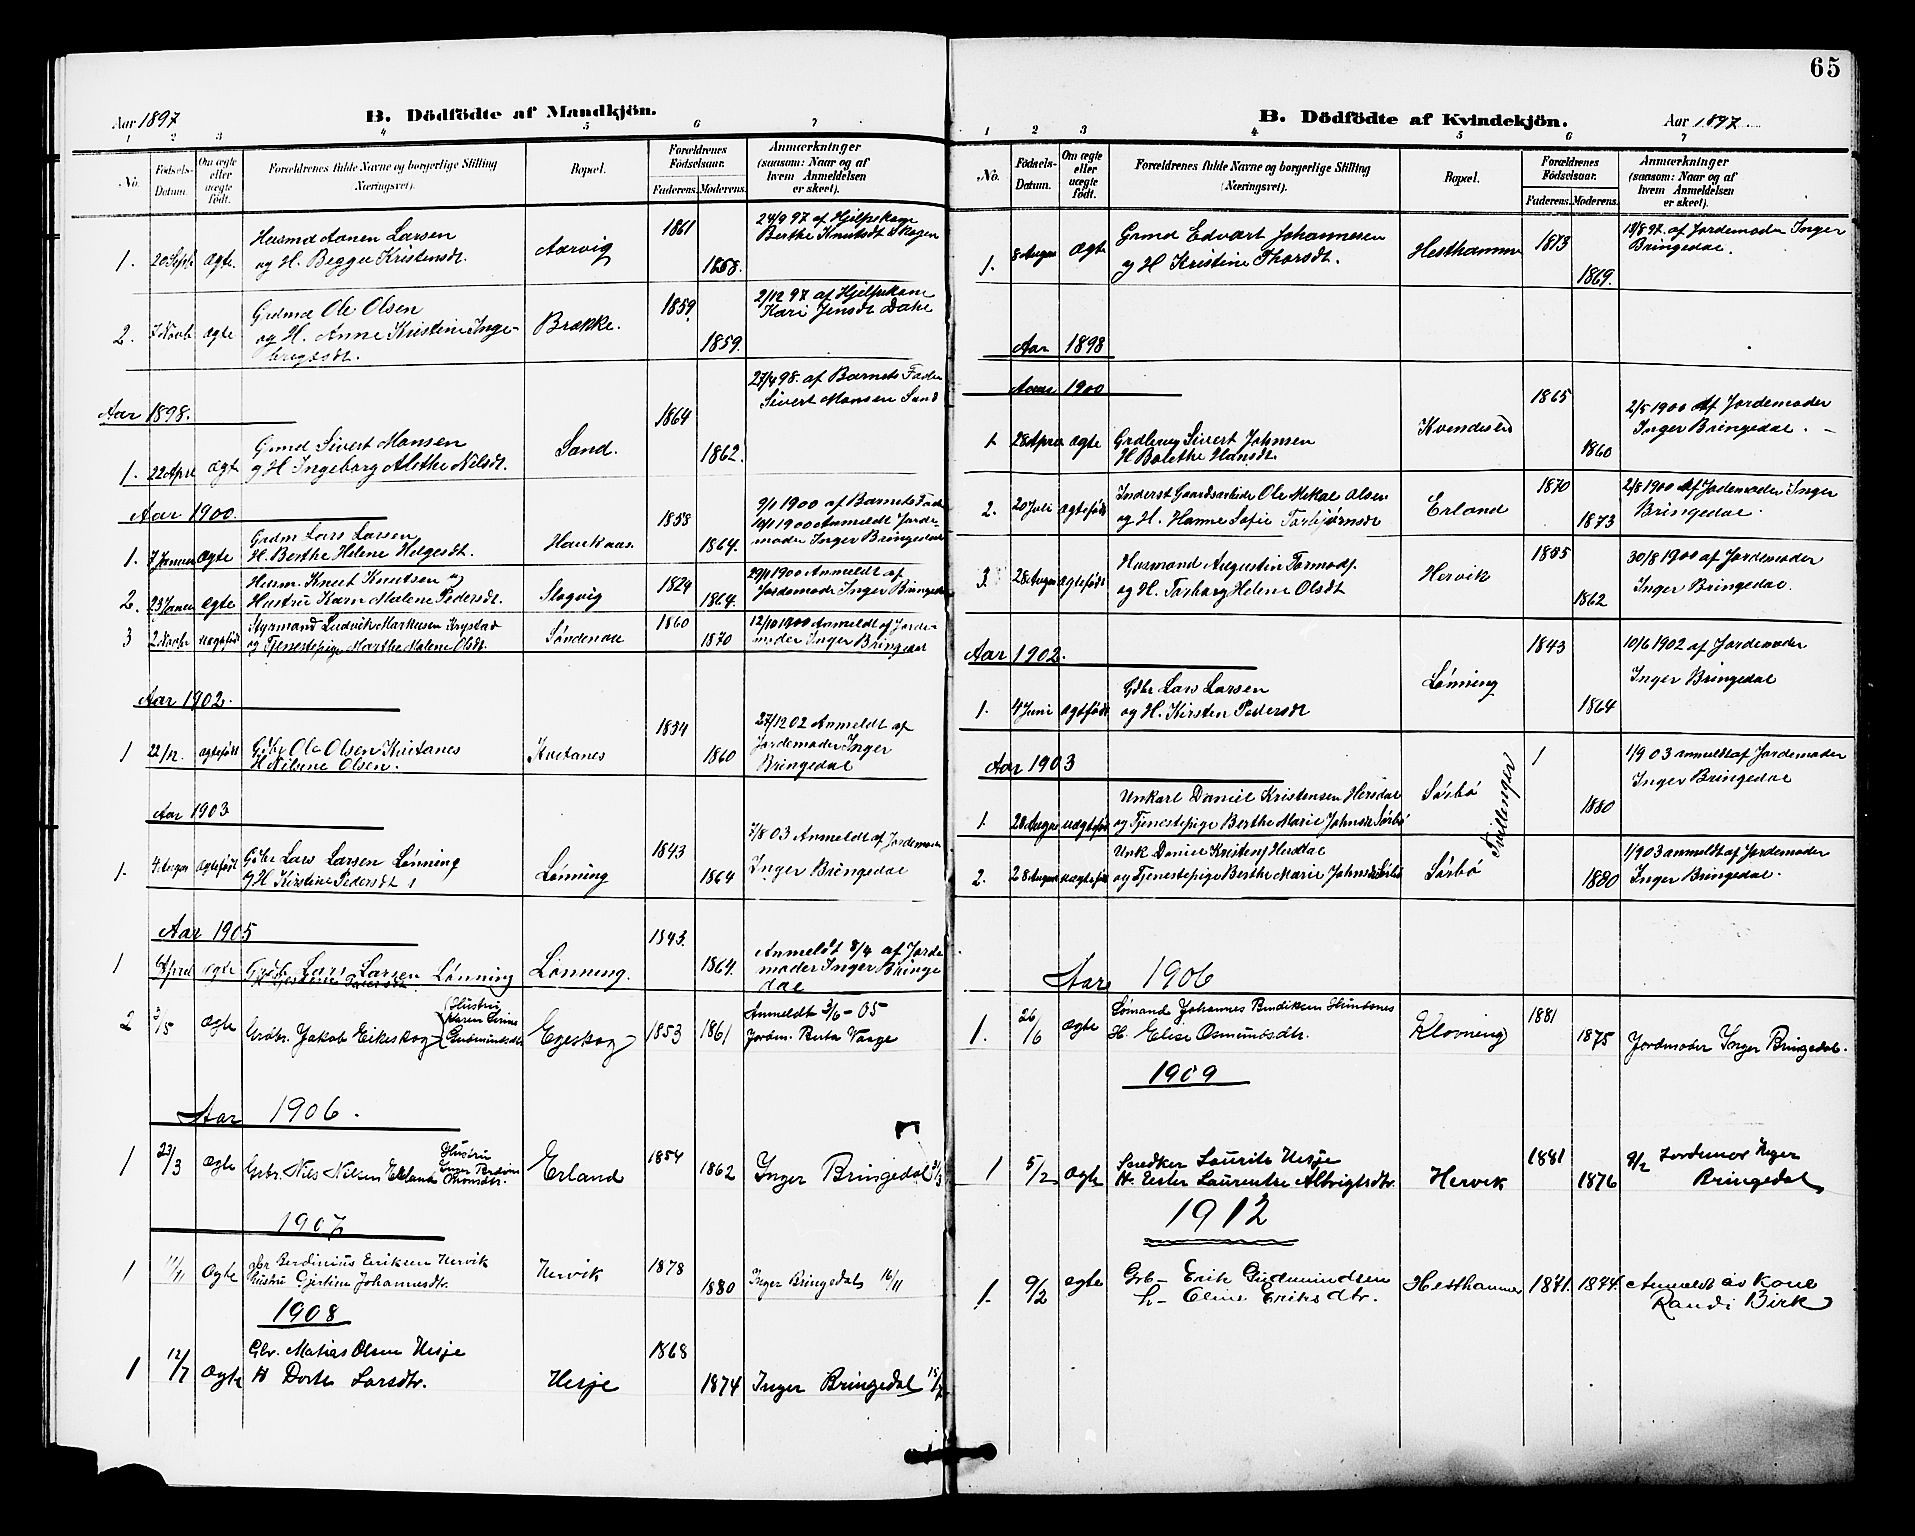 65
Aar 1897
B. Dödfödte af Mandkjön.
1 2 3 4 5 6 7
No.
Födsels-
Datum.
Om ægte
eller
uægte
födt.
Forældrenes fulde Navne og borgerlige Stilling
(Næringsvei).
Bopæl.
Forældrenes
Födselsaar.
Faderens. Moderens.
Anmærkninger
(saasom: Naar og af
hvem Anmeldelsen
er skeet).
1. 20 Septr ægte Husmd Aanen Larsen
og H. Begga Kristensdt. Aarvig 1861 1858.
24/9 97 af Hjelpekone
Berthe Knutsdt Skogen
2. 7 Novb ægte Grdmd Ole Olsen
og H. Anne Kristine Inge-
brigtsdt. Brække. 1859. 1859.
2/12 97 af Hjelpekone
Kari Jensdt Dahle
Aar 1898.
1. 22 April ægt Grmd Sivert Monsen
og H Ingeborg Alethe Nilsdt. Sand. 1864 1862.
27/4 98. af Barnets Fader
Sivert Monsen Sand
Aar 1900.
1. 7 Januar ægte Grdm Lars Larsen
H. Berthe Helene Helgesdt. Haukaas. 1858 1864.
9/1 1900 af Barnets Fad
10/1 1900 Anmeldt Jorde-
moder Inger Bringedal
2. 23 Januar ægte Husm. Knut Knutsen og
Hustru Karn Malene Pedersdt. Slogvig 1824 1864.
29/1 1900 Anmeldt af
Jordemoder Inger Bringedal
3 2 Novbr uægtefödt Styrmand Ludvik Markusen
og Tjenestepige Marthe Malene Olsdt. Söndenaa 1860 1870
12/10 1900 Anmeldt af Jorde-
moder Inger Bringedal
Aar 1902.
1 22/12. ægtefödt Gdbr Ole Olsen Kvitanes
H. Nilsine Olsen. Kvitanes 1834 1860
27/12 02 Anmeldt af
Jordemoder Inger
Bringedal
Aar 1903
1. 4. August ægtefödt Gdbr Lars Larsen Lönning
og H Kirstine Pedersdt Lönning 1843 1864
7/8 03 Anmeldt af Jordemoder
Inger Bringedal
Aar 1905
1 April ægte Grdbr Lars Larsen Lönning Lönning. 1843. 1864.
Anmeldt 8/4 af Jorde
moder Inger Bringe
dal
2 3/5 ægte Grdbr. Jakob Eikeskog Hustru
Karen Serine
Gudmundsdtr Egeskog 1853 1861
Anmeldt 3/6 - 05
Jordm. Berta Vaage
Aar 1906.
1 23/3 ægte Grbr. Nils Nilsen Erland Hustru
Thomsdtr. Erland 1854 1862 Inger Bringedal
1907
1 11/11 ægte gbr Berdinius Eriksen Hervik
hustru Gjertine Johannesdtr. Hervik 1878 1880 Inger Bringedal 16/11
1908
1 12/7 ægte Gbr. Matias Olsen Hesje
H Dorte Larsdtr. Hesje 1868 1874 Inger Bringedal 15/7
B. Dödfödte af Kvindekjön.
Aar 1897
1 2 3 4 5 6 7
No.
Födsels-
Datum.
Om ægte
eller
uægte
födt.
Forældrenes fulde Navne og borgerlige Stilling
(Næringsvei).
Bopæl.
Forældrenes
Födselsaar.
Faderens. Moderens.
Anmærkninger
(saasom: Naar og af
hvem Anmeldelsen
er skeet).
1. 8 August ægte Grmd Edvart Johannesen
og H Kristine Thorsdt. Hesthammer 1873 1869.
18/8 97. af Jordemoder Inger
Bringedal.
Aar 1898
Aar 1900
1 28 April ægte Grdbrug Sivert Johnsen
H Bolethe Hansdt. Kvendesed 1865 1860
2/5 1900 Af Jordemoder
Inger Bringedal.
2. 20 Juli ægtefödt Inderst Gaardsarbeider Ole Mekal Olsen
og H. Hanne Sofie Torbjörnsdt Erland 1870 1873
2/8 1900 Af Jordemoder Inger
Bringedal.
3. 28 August ægtefödt Husmand Augustin Tormods.
og H. Torborg Helene Olsdt Hervik 1855 1862
30/8 1900 af Jordemoder
Inger Bringedal.
Aar 1902.
1. 4 Juni ægtefödt Gdbr Lars Larsen
og H. Kirsten Pedersdt Lönning 1843 1864
10/6 1902 af Jordemoder
Inger Bringedal
Aar 1903
1. 28 August uægtefödt Unkarl Daniel Kristensen Hersdal
og Tjenestepige Berthe Marie Johnsdt Sörbö Sörbö 1 1880
1/9 03 anmeldt af Jordemoder
Inger Bringedal
Tvillinger
2. 28 August uægtefödt Unk Daniel Kristens Hersdal
og Tjenestepige Berthe Marie Johnsdt Sörbö Sörbö 1880
1/9 03 anmeldt af Jordemoder
Inger Bringedal.
Aar 1906
1. 26/6 ægte Sömand Johannes Bendiksen
H. Elise Osmundsdtr. Klovning 1881 1875 Jordmoder Inger Bringedal.
1909
1 5/2 ægte Snedker Laurits Hesje
H. Ester Laurentse Albrigtsdtr. Hervik 1881 1876
9/2 Jordemor Inger
Bringedal
1912
1. 9/2 ægte Grb- Erik Gudmundsen
h- Eline Eriksdtr. Hesthammer 1871. 1874. Anmeldt av kone
Randi Birk